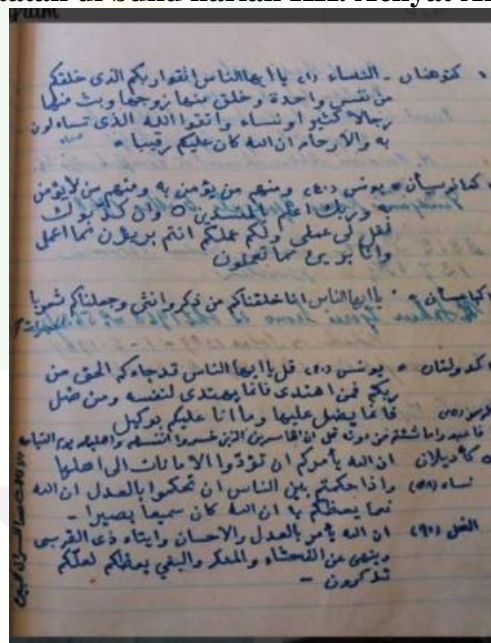 كتوهنان - النساء (١) يا ايها الناس اتقوا ربكم الذى خلقكم
من نفس واحدة وخلق منها زوجها وبث منهما
رجالا كثيرا ونساء واتقوا الله الذى تساءلون
به والارحام ان الله كان عليكم رقيبا -
يونس (٤٠) ومنهم من يؤمن به ومنهم من لا يؤمن
به وربك اعلم بالمفسدين ○ وان كذبوك
فقل لى عملى ولكم عملكم انتم بريئون مما اعمل
وانا برئ مما تعملون
يا ايها الناس انا خلقناكم من ذكر وانثى وجعلناكم شعوبا
يونس قل يا ايها الناس قد جاءكم الحق من
ربكم فمن اهتدى فانما يهتدى لنفسه ومن ضل
فانما يضل عليها وما انا عليكم بوكيل
فاعبدوا ما شئتم من دونه قل ان الخاسرين الذين خسروا انفسهم واهليهم يوم القيامة
كأديلان ان الله يأمركم ان تؤدوا الامانات الى اهلها
نساء (٥٨) واذا حكمتم بين الناس ان تحكموا بالعدل ان الله
نعما يعظكم به ان الله كان سميعا بصيرا -
النحل (٩٠) ان الله يأمر بالعدل والاحسان وايتاء ذى القربى
وينهى عن الفحشاء والمنكر والبغي يعظكم لعلكم
تذكرون -